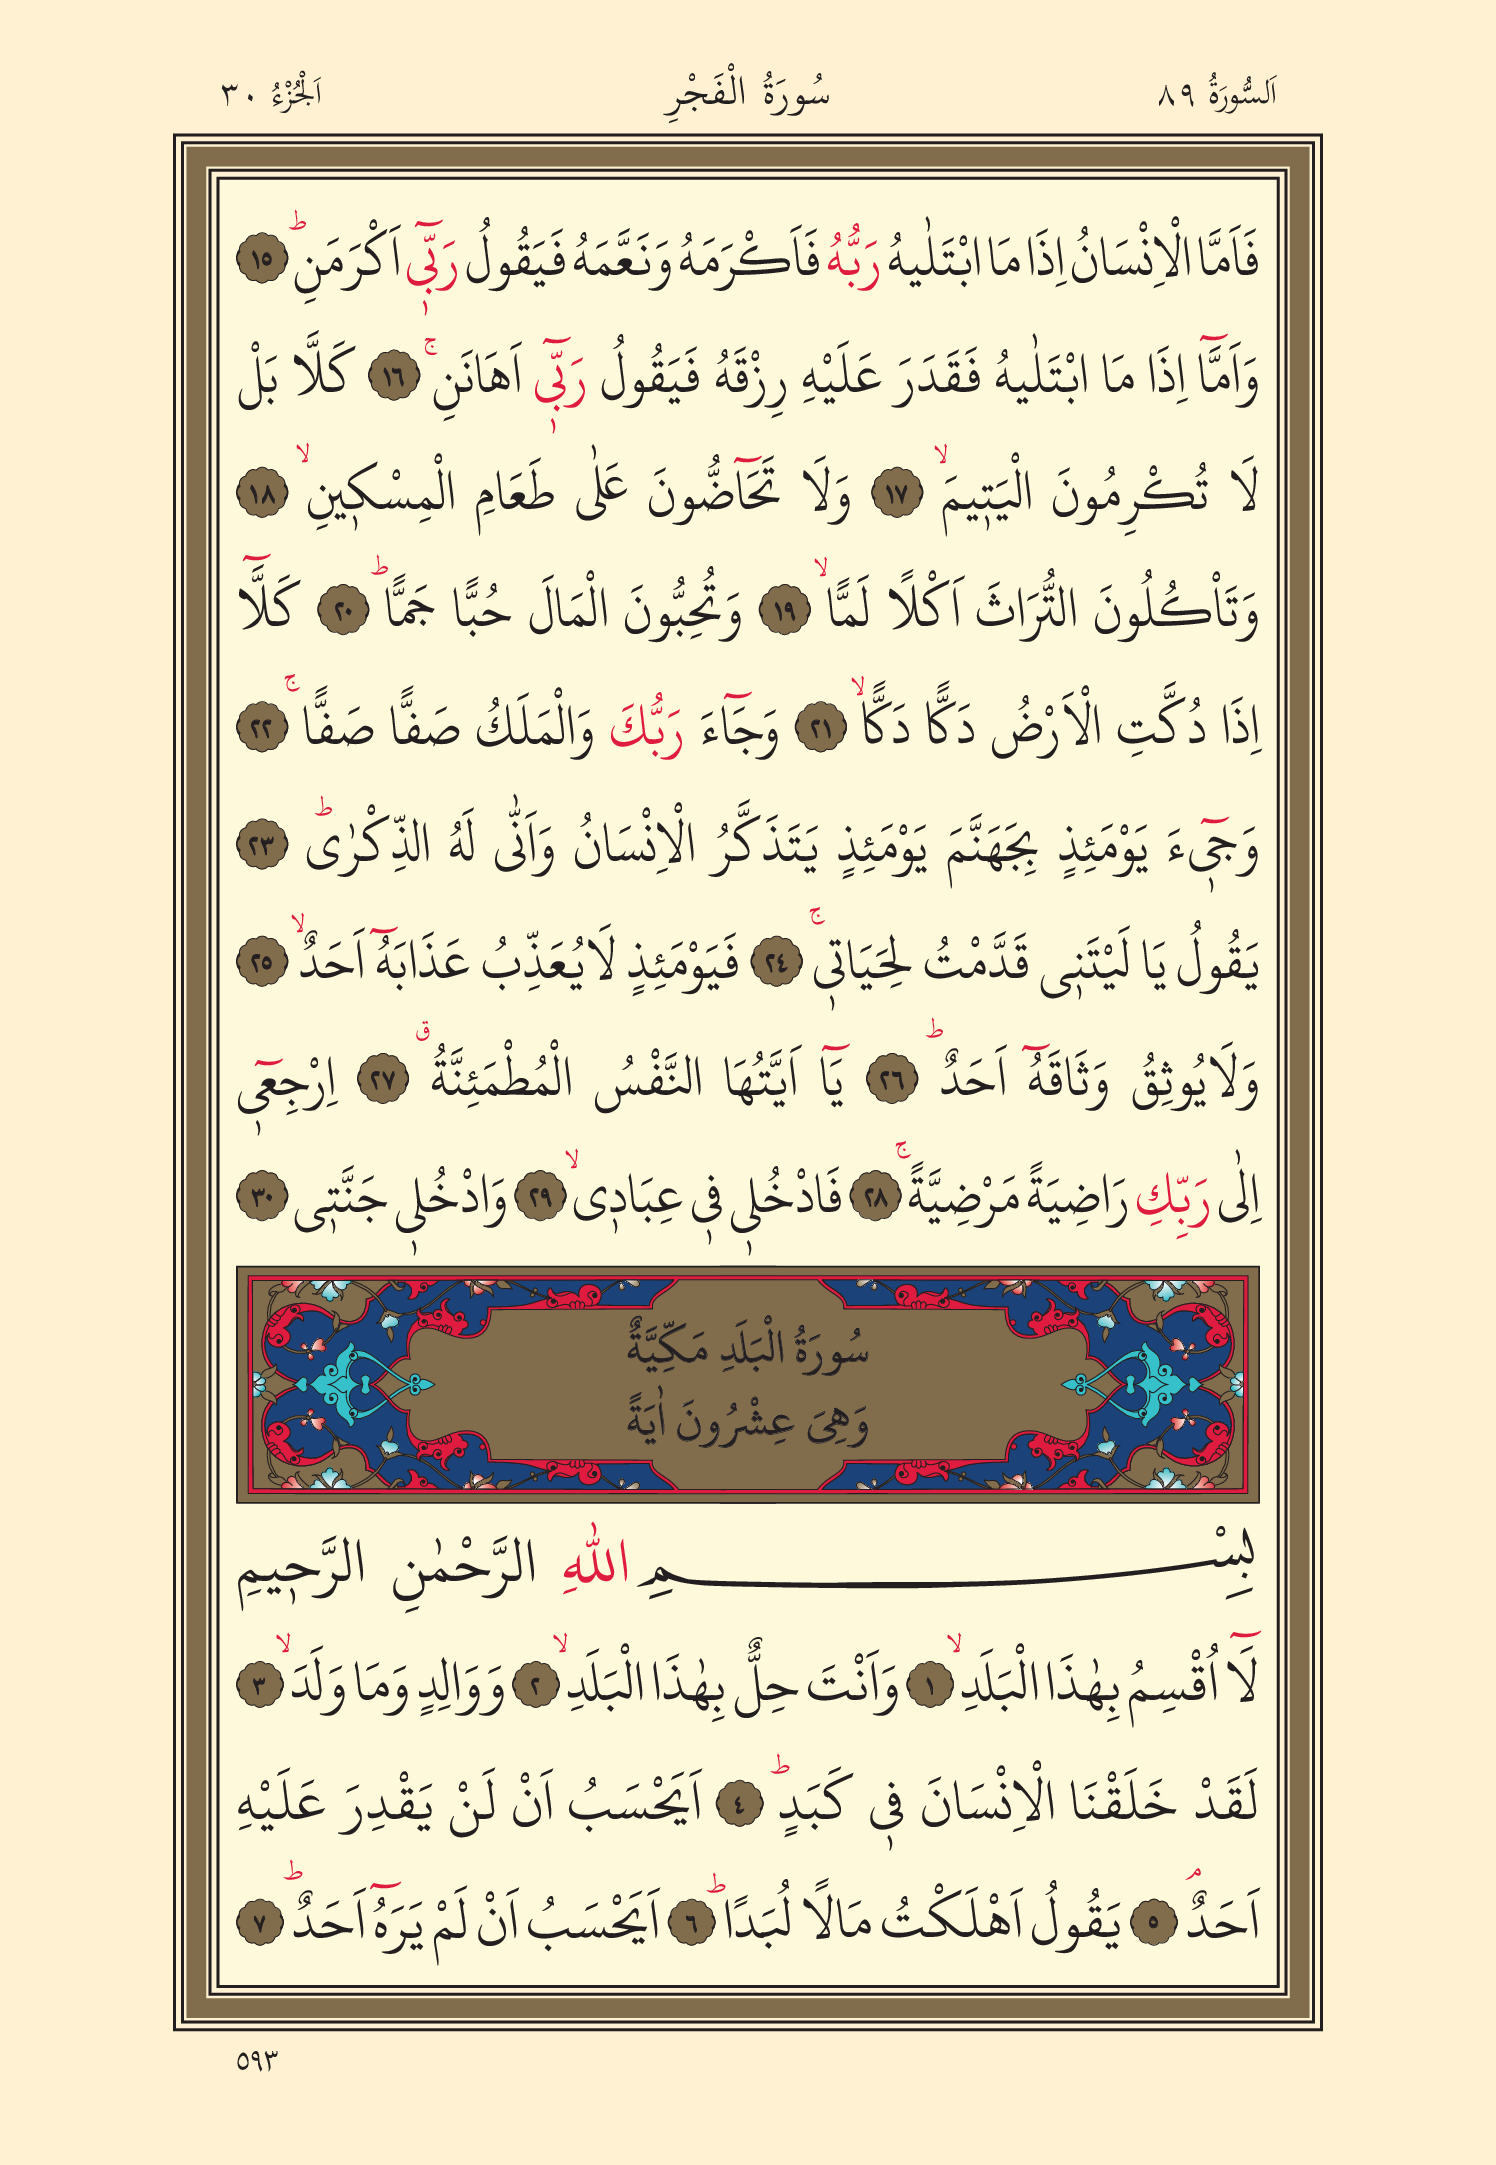 اَلسُّورَةُ ٨٩ سُورَةُ الْفَجْرِ اَلْجُزْءُ ٣٠
فَاَمَّا الْاِنْسَانُ اِذَا مَا ابْتَلٰيهُ رَبُّهُ فَاَكْرَمَهُ وَنَعَّمَهُ فَيَقُولُ رَبّ۪ٓي اَكْرَمَنِۜ ١٥
وَاَمَّٓا اِذَا مَا ابْتَلٰيهُ فَقَدَرَ عَلَيْهِ رِزْقَهُ فَيَقُولُ رَبّ۪ٓي اَهَانَنِۚ ١٦ كَلَّا بَلْ
لَا تُكْرِمُونَ الْيَت۪يمَۙ ١٧ وَلَا تَحَٓاضُّونَ عَلٰى طَعَامِ الْمِسْك۪ينِۙ ١٨
وَتَأْكُلُونَ التُّرَاثَ اَكْلًا لَمًّاۙ ١٩ وَتُحِبُّونَ الْمَالَ حُبًّا جَمًّاۜ ٢٠ كَلَّٓا
اِذَا دُكَّتِ الْاَرْضُ دَكًّا دَكًّاۙ ٢١ وَجَٓاءَ رَبُّكَ وَالْمَلَكُ صَفًّا صَفًّاۚ ٢٢
وَج۪ٓيءَ يَوْمَئِذٍ بِجَهَنَّمَ يَوْمَئِذٍ يَتَذَكَّرُ الْاِنْسَانُ وَاَنّٰى لَهُ الذِّكْرٰىۜ ٢٣
يَقُولُ يَا لَيْتَن۪ي قَدَّمْتُ لِحَيَات۪يۚ ٢٤ فَيَوْمَئِذٍ لَا يُعَذِّبُ عَذَابَهُٓ اَحَدٌۙ ٢٥
وَلَا يُوثِقُ وَثَاقَهُٓ اَحَدٌۜ ٢٦ يَٓا اَيَّتُهَا النَّفْسُ الْمُطْمَئِنَّةُۗ ٢٧ اِرْجِع۪ٓي
اِلٰى رَبِّكِ رَاضِيَةً مَرْضِيَّةًۚ ٢٨ فَادْخُل۪ي ف۪ي عِبَاد۪يۙ ٢٩ وَادْخُل۪ي جَنَّت۪ي ٣٠
سُورَةُ الْبَلَدِ مَكِّيَّةٌ
وَهِيَ عِشْرُونَ اٰيَةً
بِسْمِ اللّٰهِ الرَّحْمٰنِ الرَّح۪يمِ
لَٓا اُقْسِمُ بِهٰذَا الْبَلَدِۙ ١ وَاَنْتَ حِلٌّ بِهٰذَا الْبَلَدِۙ ٢ وَوَالِدٍ وَمَا وَلَدَۙ ٣
لَقَدْ خَلَقْنَا الْاِنْسَانَ ف۪ي كَبَدٍۜ ٤ اَيَحْسَبُ اَنْ لَنْ يَقْدِرَ عَلَيْهِ
اَحَدٌۢ ٥ يَقُولُ اَهْلَكْتُ مَالًا لُبَدًاۜ ٦ اَيَحْسَبُ اَنْ لَمْ يَرَهُٓ اَحَدٌۜ ٧
٥٩٣